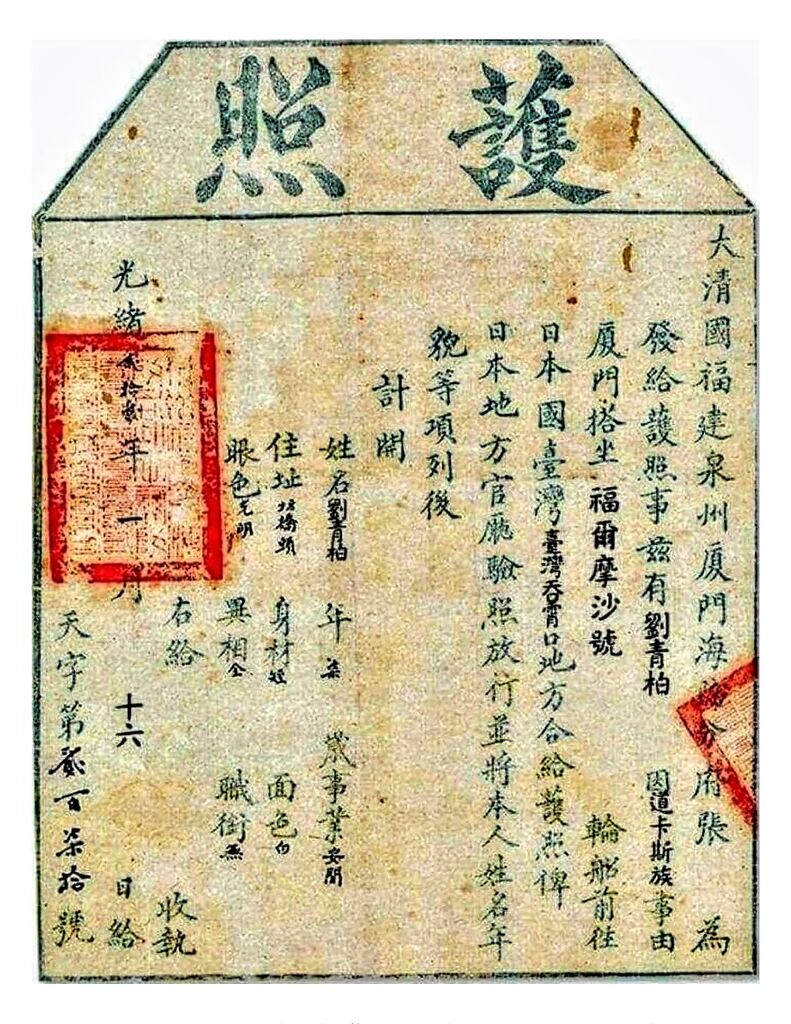 護照
大清國福建泉州廈門海防分府張 為
發給護照事茲有劉青柏 因道卡斯族事由
廈門搭坐福爾摩沙號 輪船前往
日本國臺灣臺灣吞霄口地方合給護照俾
日本地方官廳驗照放行並將本人姓名年
貌等項列後
計開
姓名劉青柏 年柒 歲事業安閒
住址坊橋頭 身材短 面色白
眼色光明 異相全 職銜無
右給 收執
光緒貳拾年一月 十六 日給
天字第貳百柒拾號